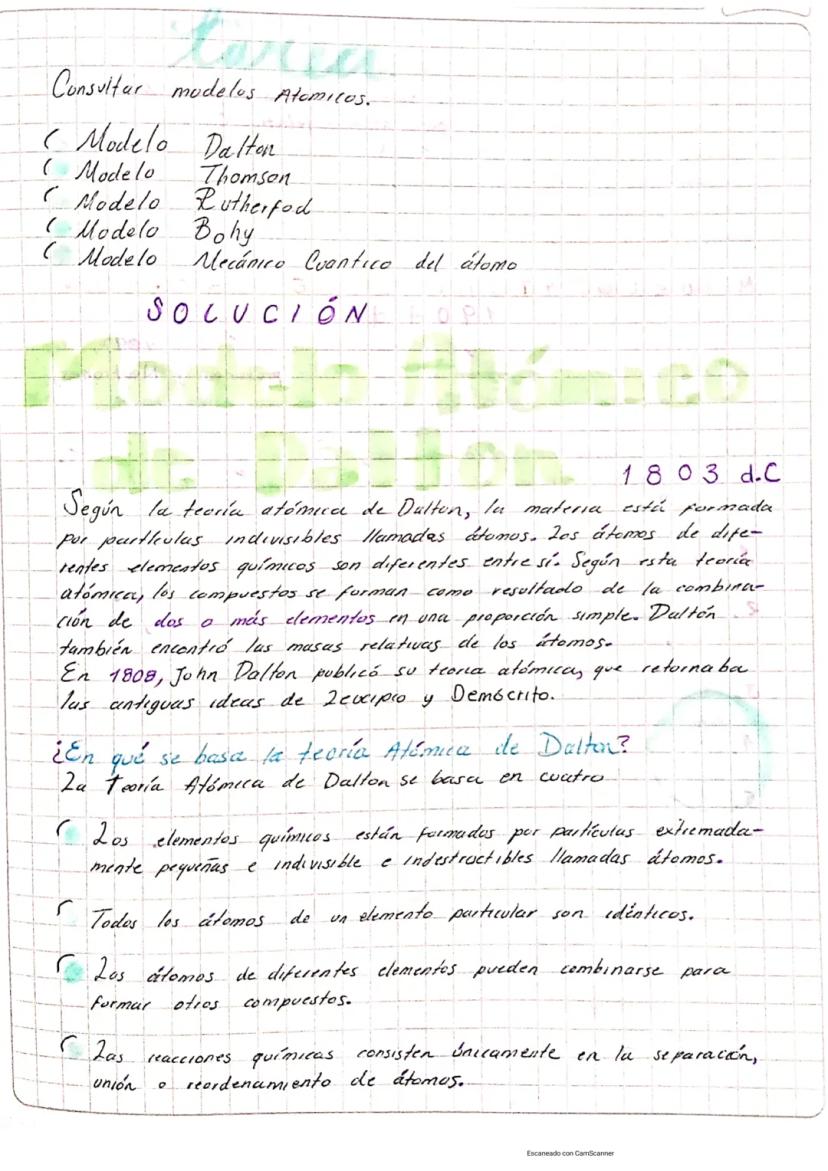 Tarea
Consultar modelos Atomicos.
Modelo Dalton
Modelo Thomson
Modelo Rutherfod
Modelo Bohy
Modelo Mecánico Cuantico del átomo
SOLUCIÓN
Modelo Atómico
de Dalton 1803 d.C
Según la teoría atómica de Dalton, la materia está formada
por partículas indivisibles llamadas átomos. Los átomos de dife-
rentes elementos químicos son diferentes entre sí. Según esta teoría
atómica, los compuestos se forman como resultado de la combina-
ción de dos o más elementos en una proporción simple. Daltón
también encontró las masas relativas de los átomos.
En 1808, John Dalton publicó su teoría atómica, que retornaba
las antiguas ideas de Leucipio y Demócrito.
¿En qué se basa la teoría Atómica de Dalton?
La Teoría Atómica de Dalton se basa en cuatro
Los elementos químicos están formados por partículas extremada-
mente pequeñas e indivisible e indestructibles llamadas átomos.
Todos los átomos de un elemento particular son idénticos.
Los átomos de diferentes elementos pueden combinarse para
formar otros compuestos.
Las reacciones químicas consisten únicamente en la separación,
unión o reordenamiento de átomos.
Escaneado con CamScanner